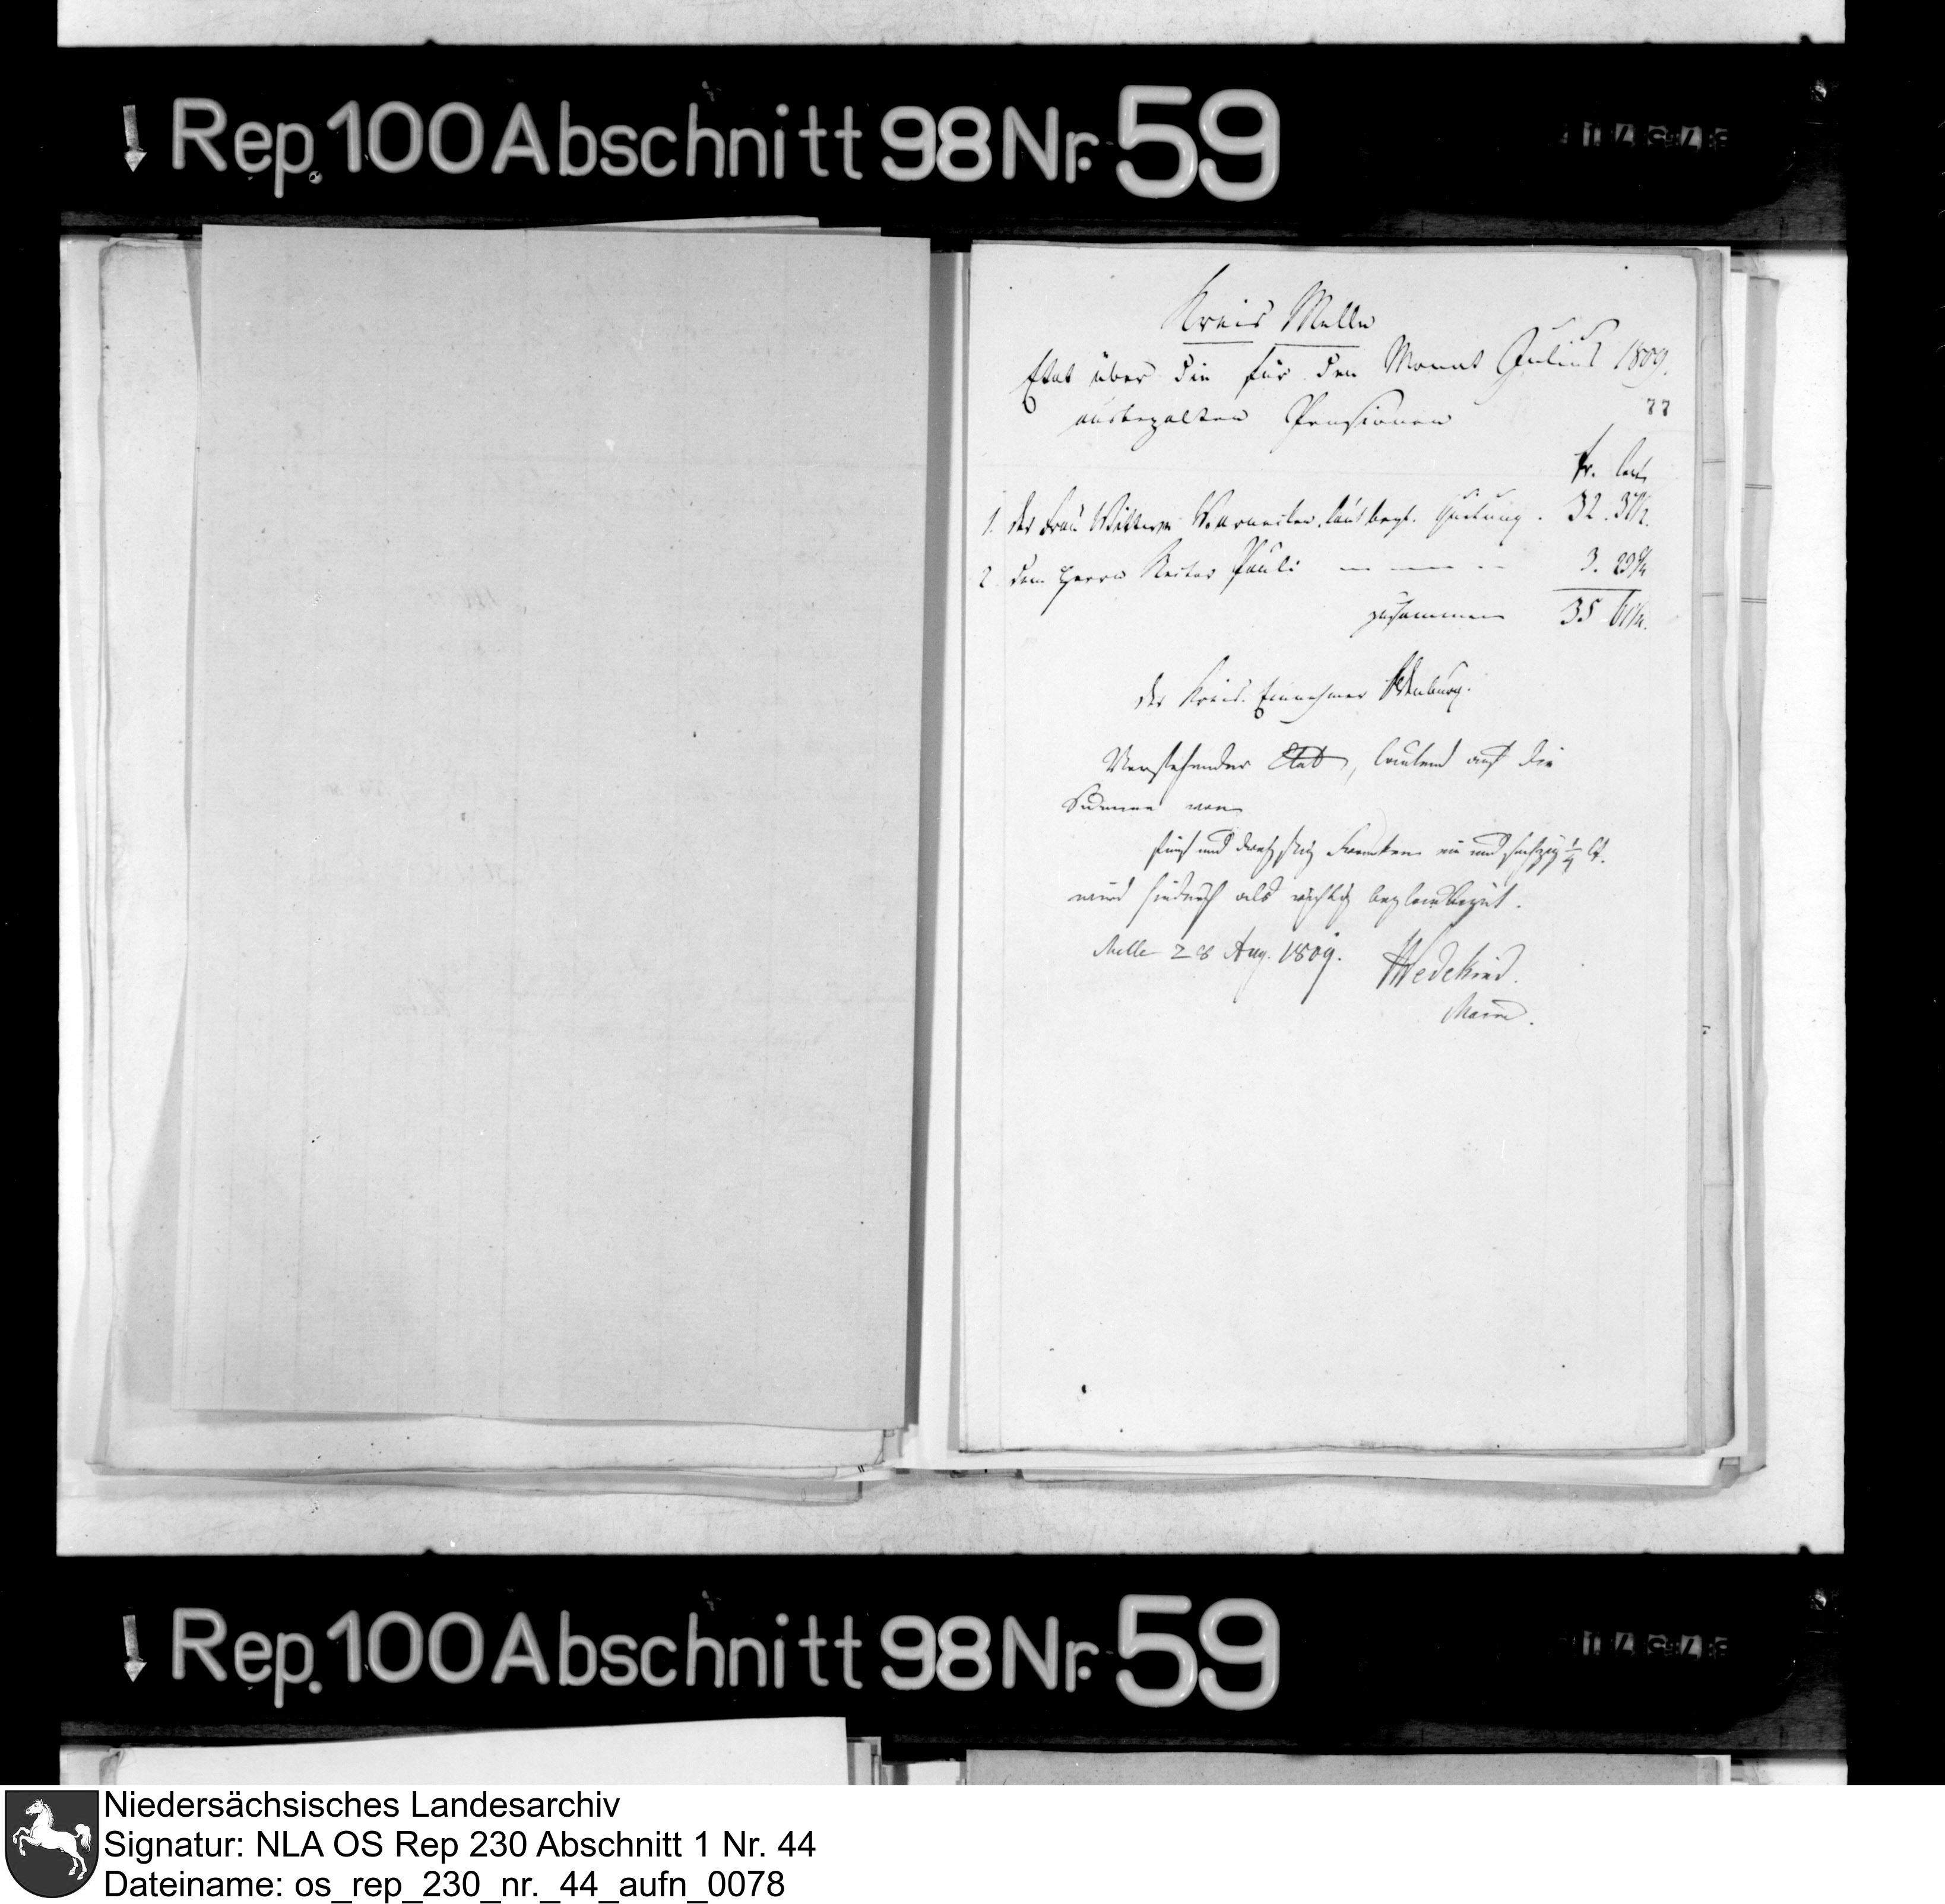 Rep. 100 Abschnitt 98 Nr. 59
Kreis Melle
Etat über die für den Monat Julius 1809.
ausbezalten Pensionen
77
Fr. Cent
1. der Frau Wittwe laut begl. Quitung . 32 . 37½.
2. dem Herrn Rector Pauli — — — 3. 23¾
zusammen 35 61¼.
der Kreis. Einnehmer
Vorstehender Etat, lautend auf die
Summe von
fünf und dreyssig Franken ein und sechzig ¼ Ct.
wird hiedurch als richtig beglaubiget.
Melle 28 Aug. 1809. Wedekind.
Maire.
Rep. 100 Abschnitt 98 Nr. 59
Niedersächsisches Landesarchiv
Signatur: NLA OS Rep 230 Abschnitt 1 Nr. 44
Dateiname: os_rep_230_nr._44_aufn_0078